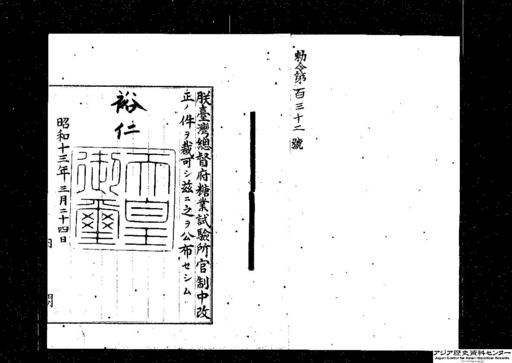 勅令第百三十二號
朕臺灣總督府糖業試驗所官制中改
正ノ件ヲ裁可シ茲ニ之ヲ公布セシム
裕仁
天皇
御璽
昭和十三年三月二十四日
内閣
アジア歴史資料センター
Japan Center for Asian Historical Records